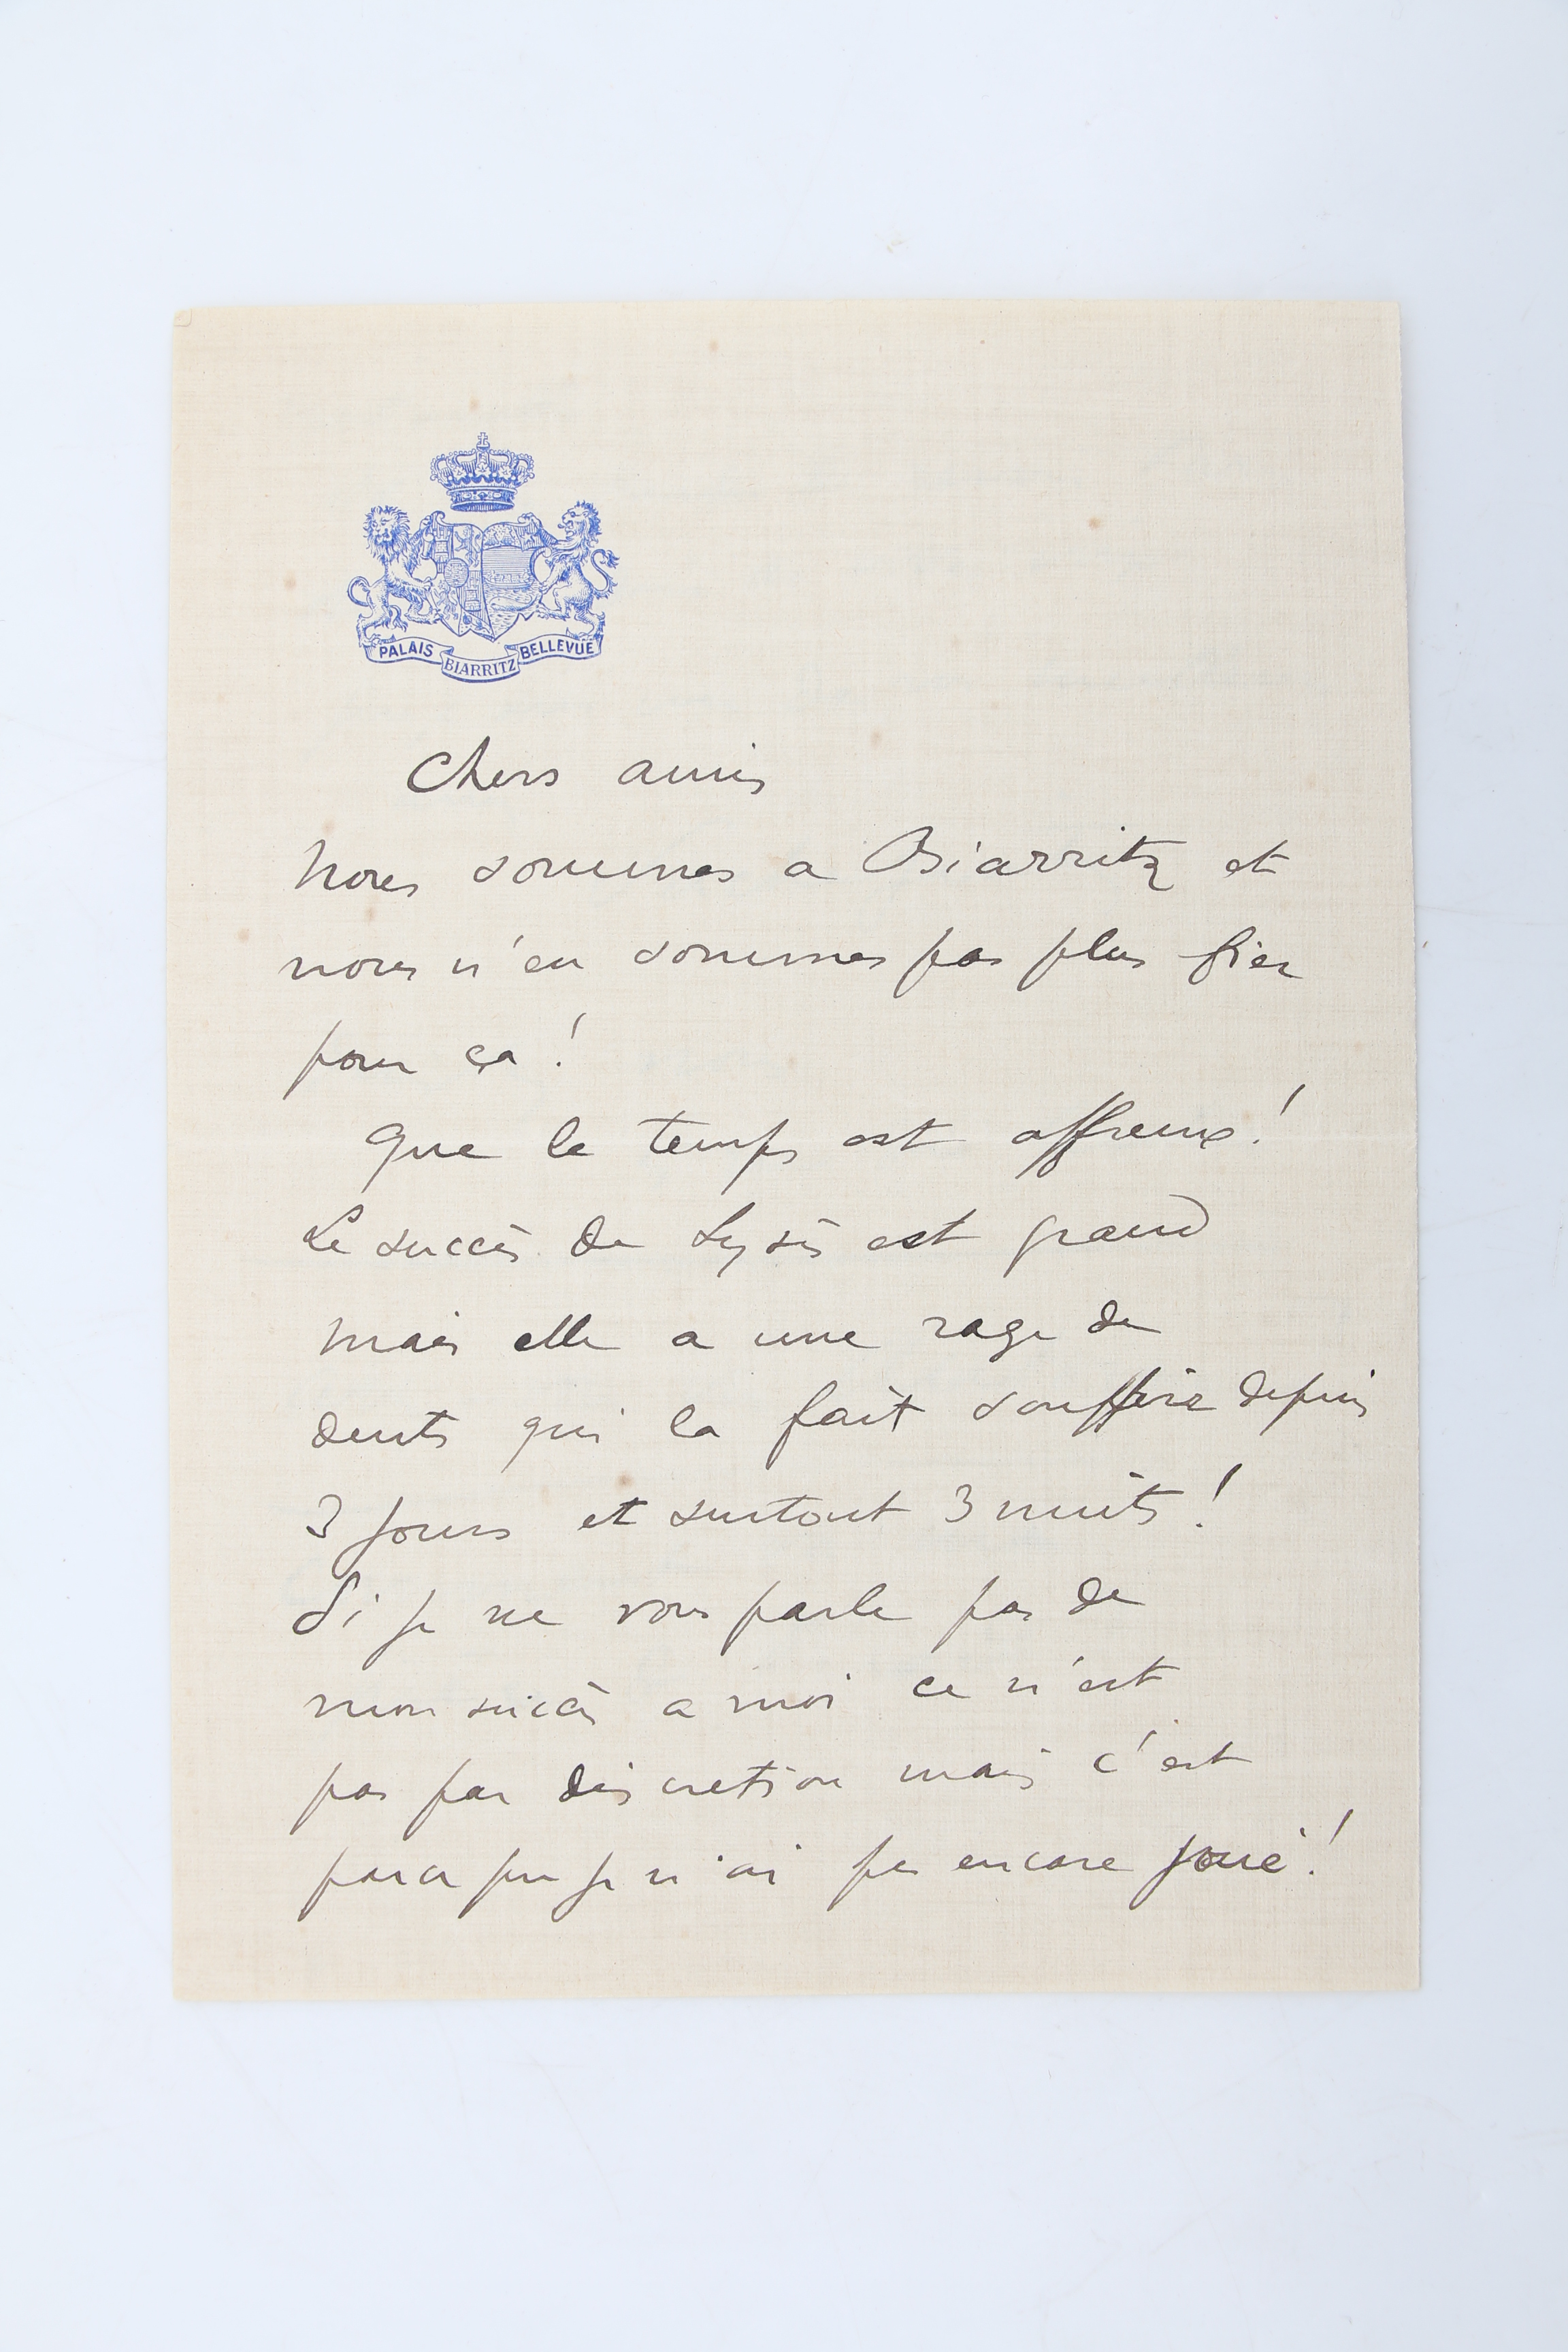 PALAIS BIARRITZ BELLEVUE
Chers amis
Nous sommes a Biarritz et
nous n'en sommes pas plus fier
pour ça !
Que le temps est affreux !
Le succès de Lysès est grand
mais elle a une rage de
dents qui la fait souffrir depuis
3 jours et surtout 3 nuits !
Si je ne vous parle pas de
mon succès a moi ce n'est
pas par discretion mais c'est
parce que je n'ai pas encore joué !